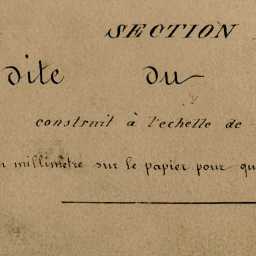 SECTION
dite du
construit à l'echelle de
millimètre sur le papier pour